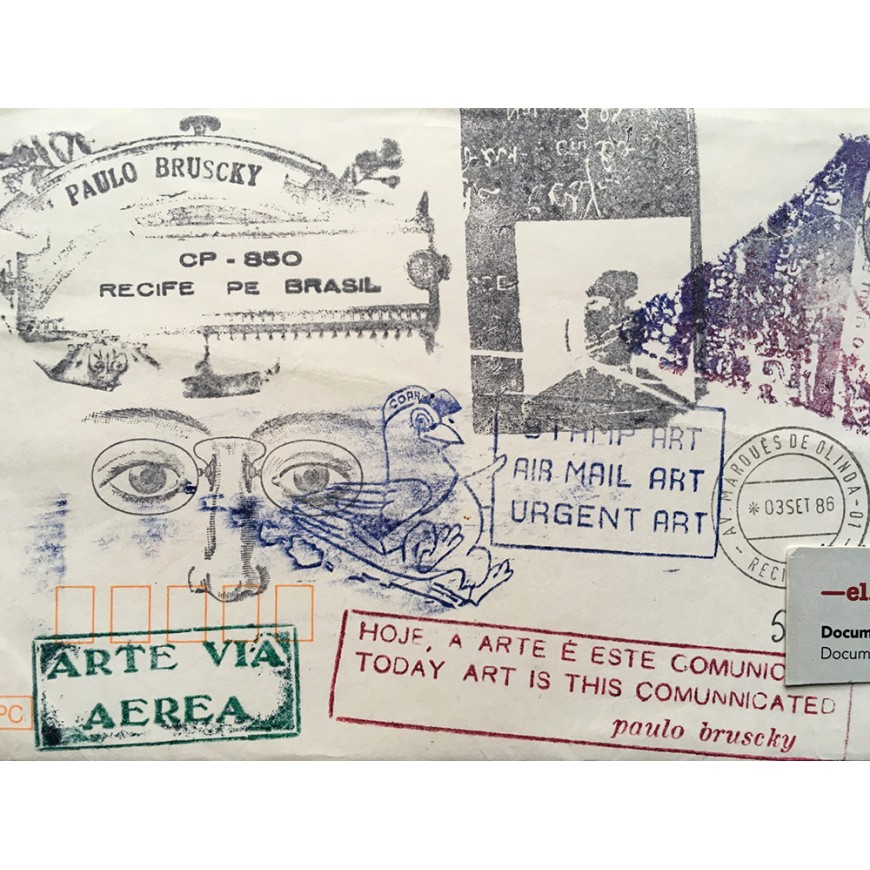 PAULO BRUSCKY
CP - 850
RECIFE PE BRASIL
STAMP ART
AIR MAIL ART
URGENT ART
AV. MARQUÊS DE OLINDA - 01
*03SET 86
ARTE VIA
AEREA
PC
HOJE, A ARTE É ESTE COMUNIC
TODAY ART IS THIS COMUNNICATED
paulo bruscky
5
—el.
Docum
Docum